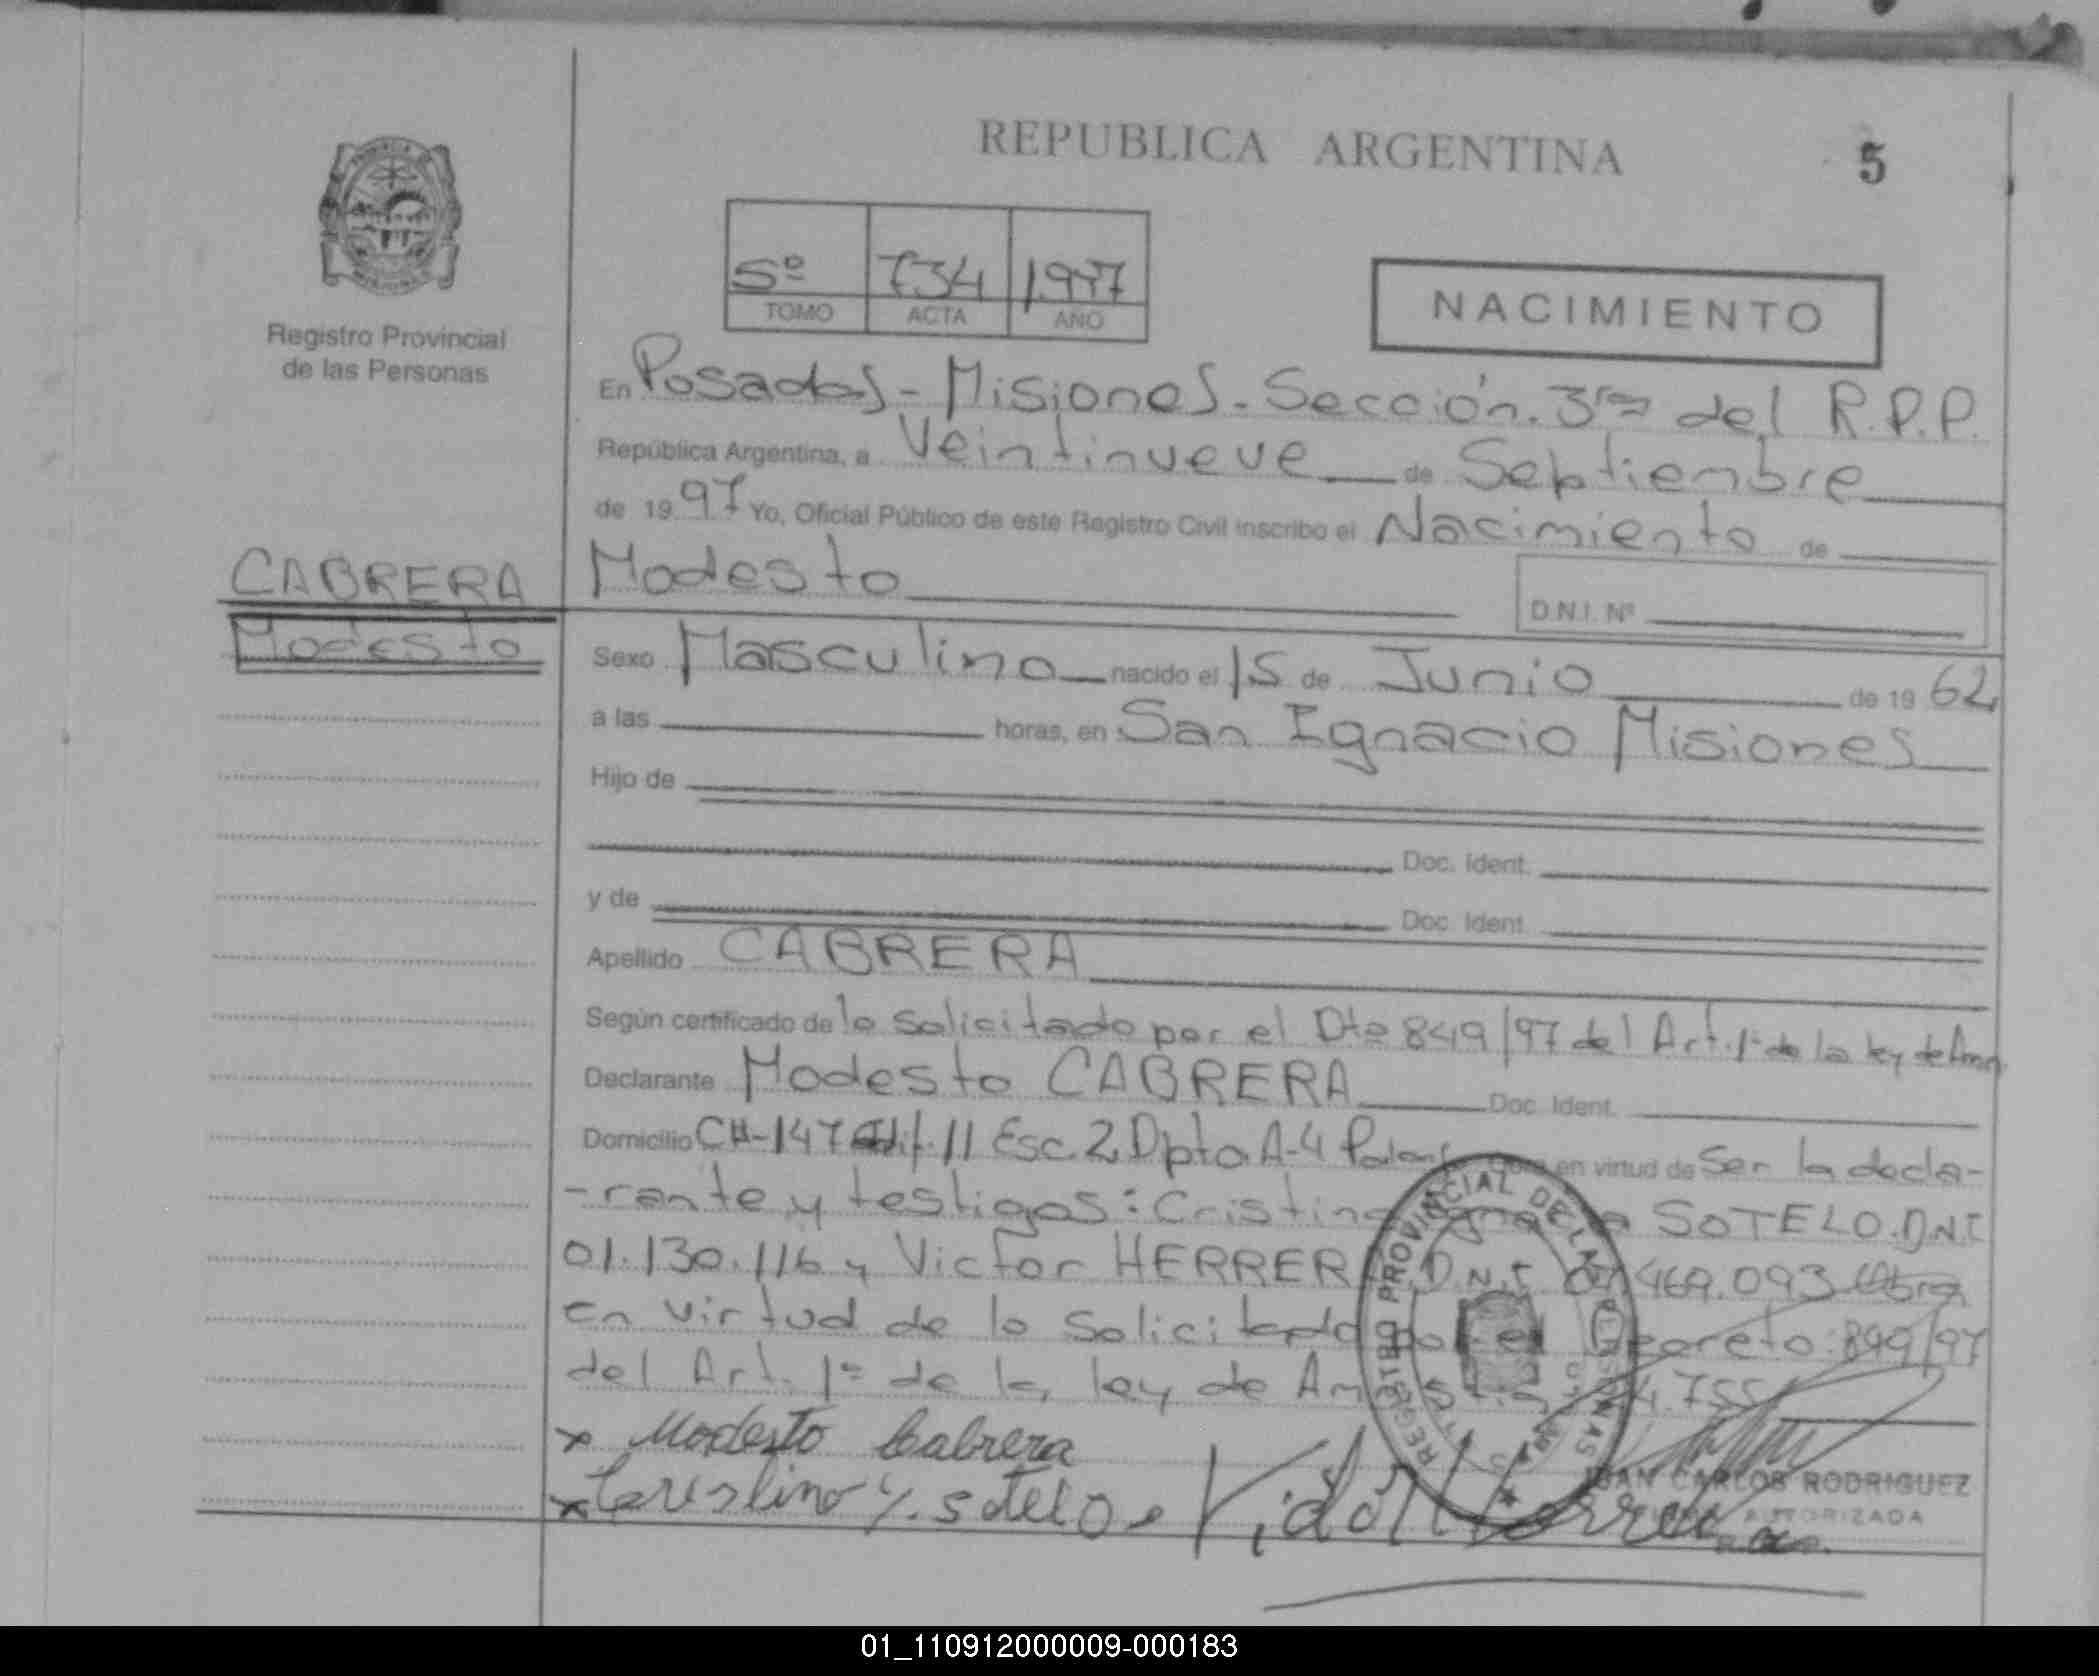 REPUBLICA ARGENTINA
5
Registro Provincial
de las Personas
5º 734 1997
TOMO ACTA AÑO
NACIMIENTO
En Posadas - Misiones. Sección. 3ra del R.P.P.
República Argentina, a Veintinueve de Septiembre
de 19 97 Yo, Oficial Público de este Registro Civil inscribo el Nacimiento de
CABRERA
Modesto
Modesto
D.N.I. Nº
Sexo Masculino nacido el 15 de Junio de 19 62
a las horas, en San Ignacio Misiones
Hijo de
Doc. Ident.
y de Doc. Ident.
Apellido CABRERA
Según certificado de lo solicitado por el Dto 849/97 del Art. 1º de la ley de Amn
Declarante Modesto CABRERA Doc. Ident.
Domicilio CH-147 Edif. 11 Esc. 2 Dpto A-4 en virtud de Ser la decla-
-rante y testigos: Cristina SOTELO. D.N.I
01.130.116 y Victor HERRERA D.N.I 469.093 Obra
en virtud de lo Solicitado por el Decreto: 849/97
del Art. 1º de la ley de Amnistia 4.755
x Modesto Cabrera
x Cristina Y. Sotelo
Victor Herrera
REGISTRO PROVINCIAL DE LAS PERSONAS
JUAN CARLOS RODRIGUEZ
AUTORIZADA
01_110912000009-000183